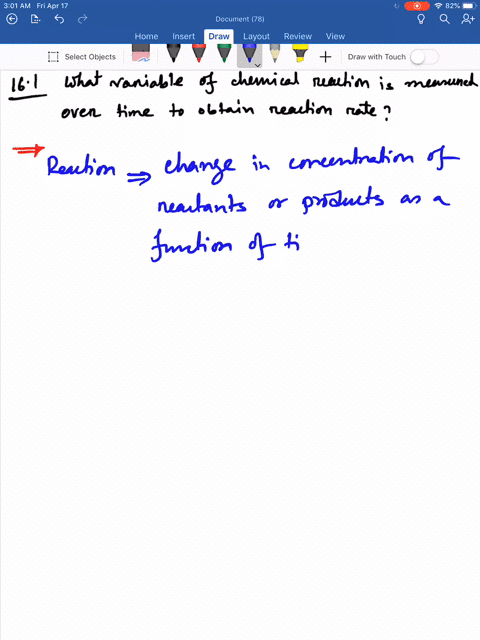 3:01 AM Fri Apr 17
82%
Document (78)
Home Insert Draw Layout Review View
Select Objects
Draw with Touch
16.1 What variable of chemical reaction is measured
over time to obtain reaction rate?
⇒ Reaction ⇒ change in concentration of
reactants or products as a
function of ti